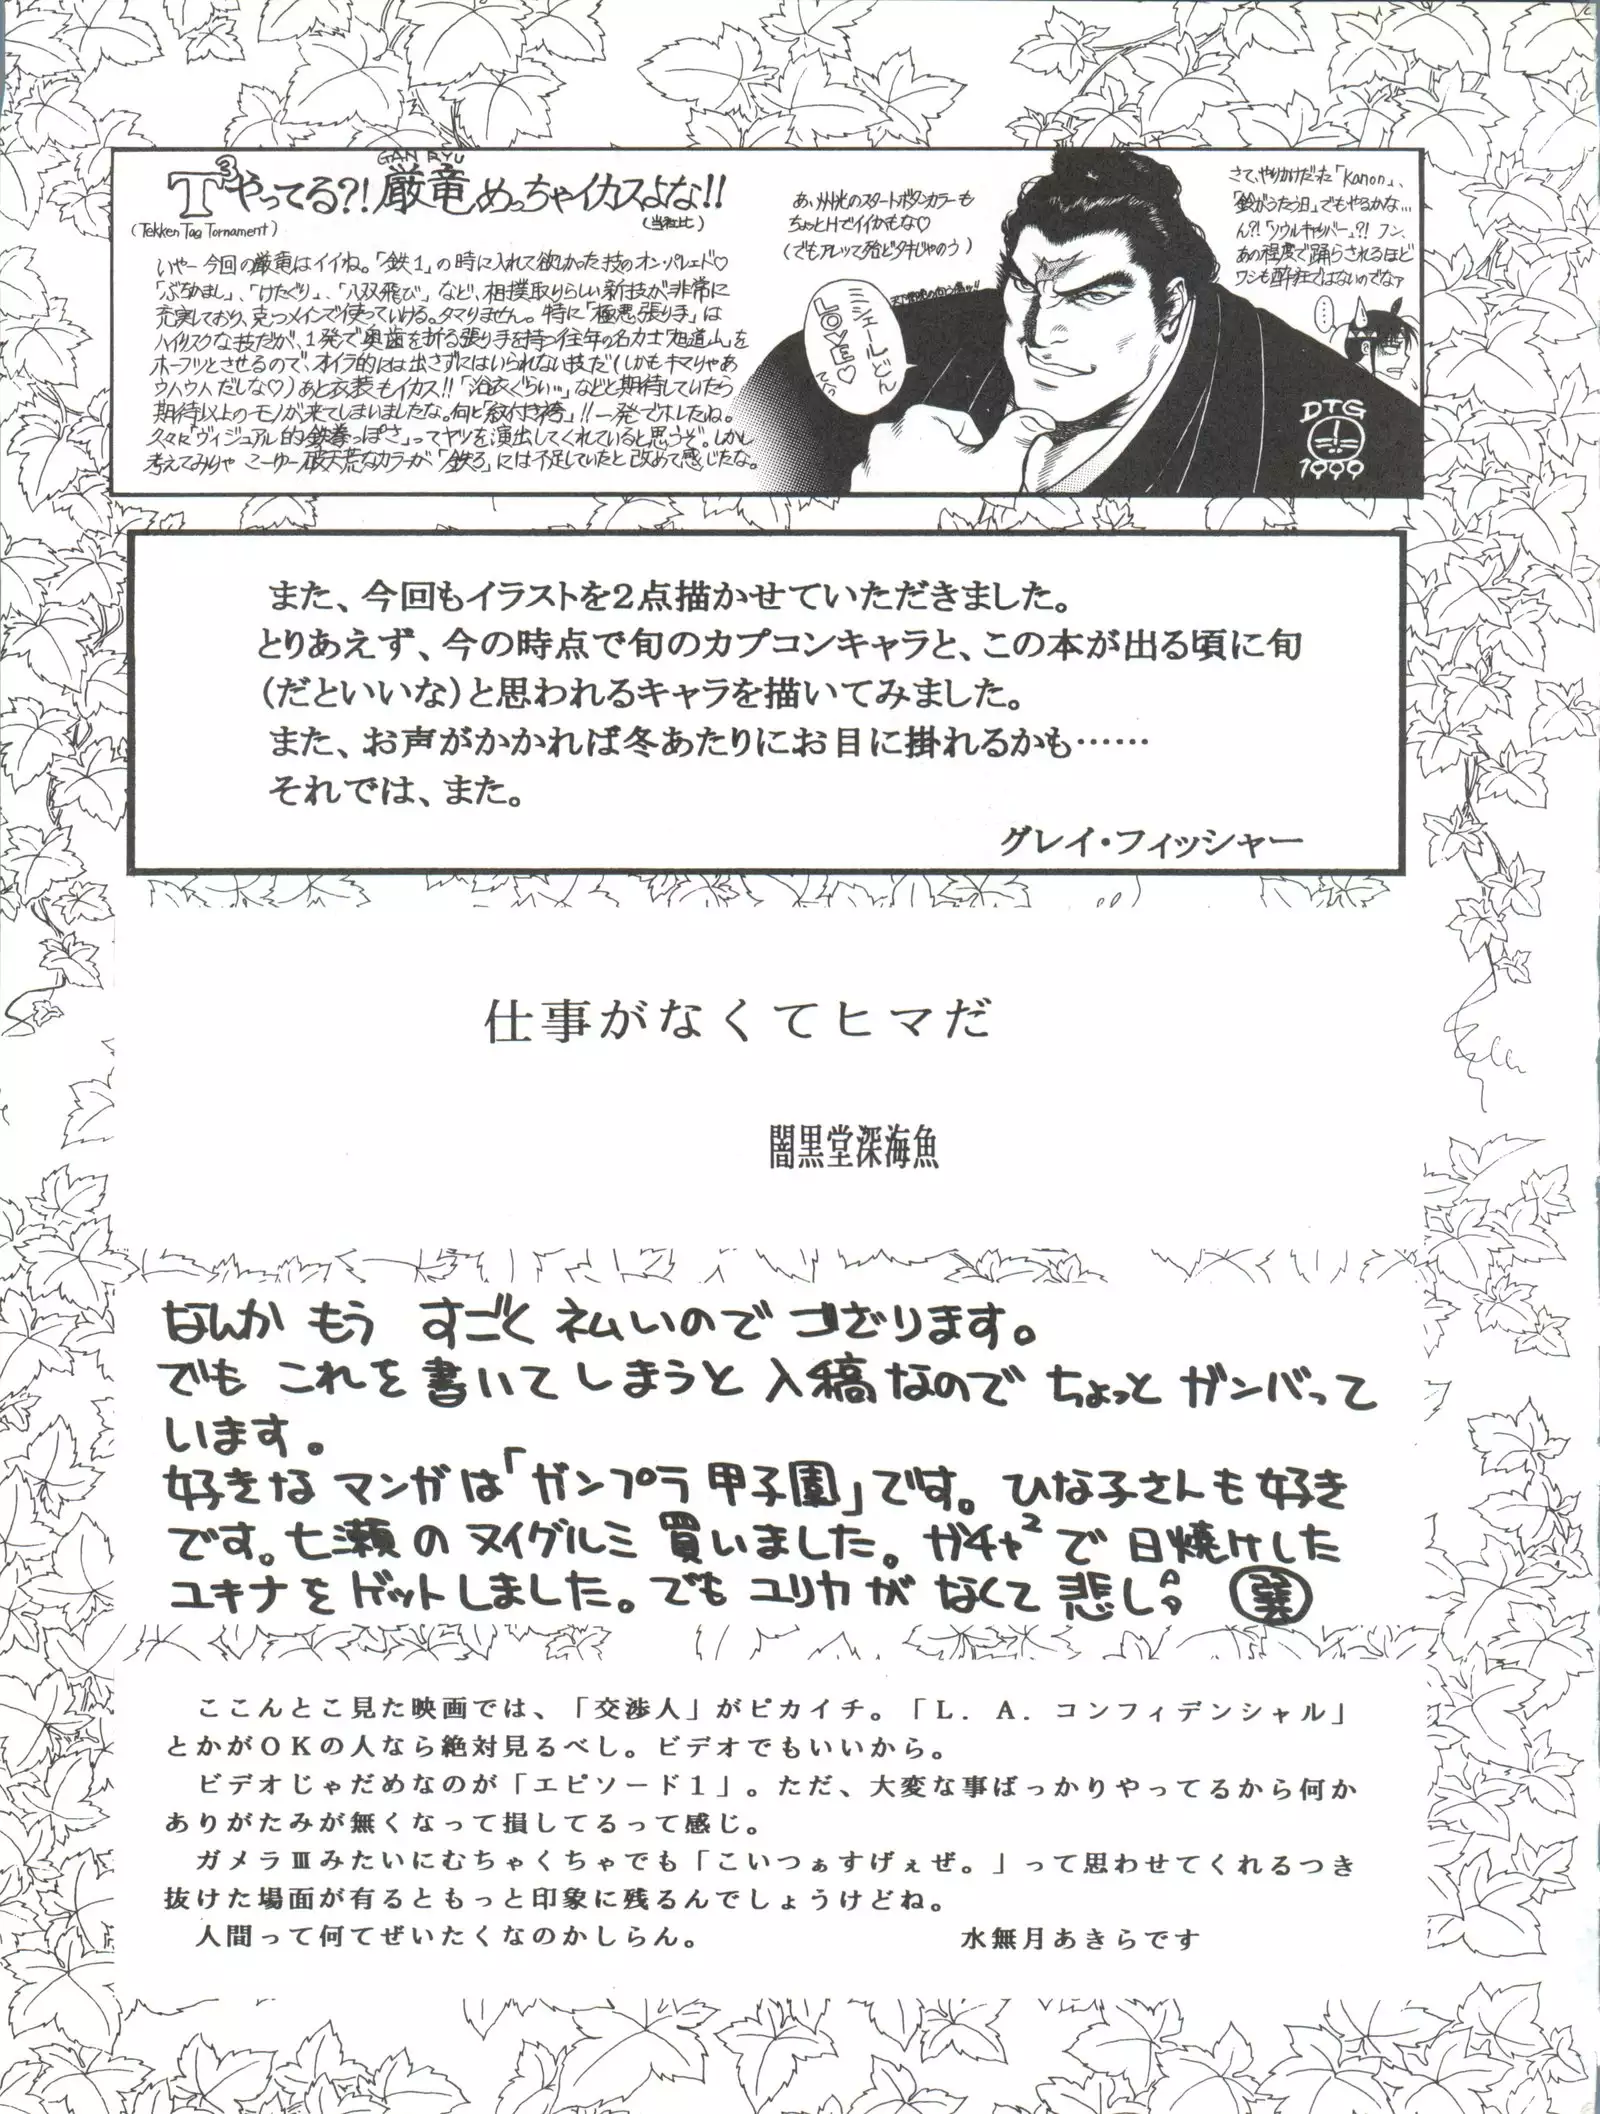 GAN RYU
T³やってる?! 厳竜めっちゃイカスよな!!
(Tekken Tag Tornament)
(当社比)
いやー今回の厳竜はイイね。「鉄1」の時に入れて欲しかった技のオン・パレェド♡
「ぶちかまし」、「けたぐり」、「八双飛び」など、相撲取りらしい新技が非常に
充実しており、克つメインで使っていける。タマりません。特に「極悪張り手」は
ハイリスクな技だが、1発で奥歯を折る張り手を持つ往年の名力士
ホーフツとさせるので、オイラ的には出さずにはいられない技だ(しかもキマりゃあ
ウハウハだしな♡)あと衣装もイカス!!「浴衣ぐらい…」などと期待していたら
期待以上のモノが来てしまいましたな。何と「紋付き袴」!!一発でホレたね。
久々に「ヴィジュアル的鉄拳っぽさ」ってヤツを演出してくれていると思うぞ。しかし
考えてみりゃ こーゆー破天荒なカラーが「鉄3」には不足していたと改めて感じたな。
あ、州光のスタートボタンカラーも
ちょっとHでイイかもな♡
(でもアレッて殆どタキじゃのう)
ミシェールどん
LOVE♡
さて、やりかけだった「Kanon」、
「鈴がうたう日」でもやるかな…
ん?!「ソウルキャリバー」?! フン、
あの程度で踊らされるほど
ワシも酔狂ではないのでなァ
……
DTG
1999
また、今回もイラストを2点描かせていただきました。
とりあえず、今の時点で旬のカプコンキャラと、この本が出る頃に旬
(だといいな)と思われるキャラを描いてみました。
また、お声がかかれば冬あたりにお目に掛れるかも……
それでは、また。
グレイ・フィッシャー
仕事がなくてヒマだ
闇黒堂深海魚
なんか もう すごく ネムいので ござります。
でも これを 書いて しまうと 入稿 なので ちょっと ガンバって
います。
好きな マンガは「ガンプラ 甲子園」です。 ひな子さんも 好き
です。七瀬の ヌイグルミ 買いました。 ガチャ²で 日焼けした
ユキナを ゲット しました。でも ユリカが なくて 悲し
ここんとこ見た映画では、「交渉人」がピカイチ。「L.A.コンフィデンシャル」
とかがOKの人なら絶対見るべし。ビデオでもいいから。
ビデオじゃだめなのが「エピソード1」。ただ、大変な事ばっかりやってるから何か
ありがたみが無くなって損してるって感じ。
ガメラⅢみたいにむちゃくちゃでも「こいつぁすげぇぜ。」って思わせてくれるつき
抜けた場面が有るともっと印象に残るんでしょうけどね。
人間って何てぜいたくなのかしらん。
水無月あきらです